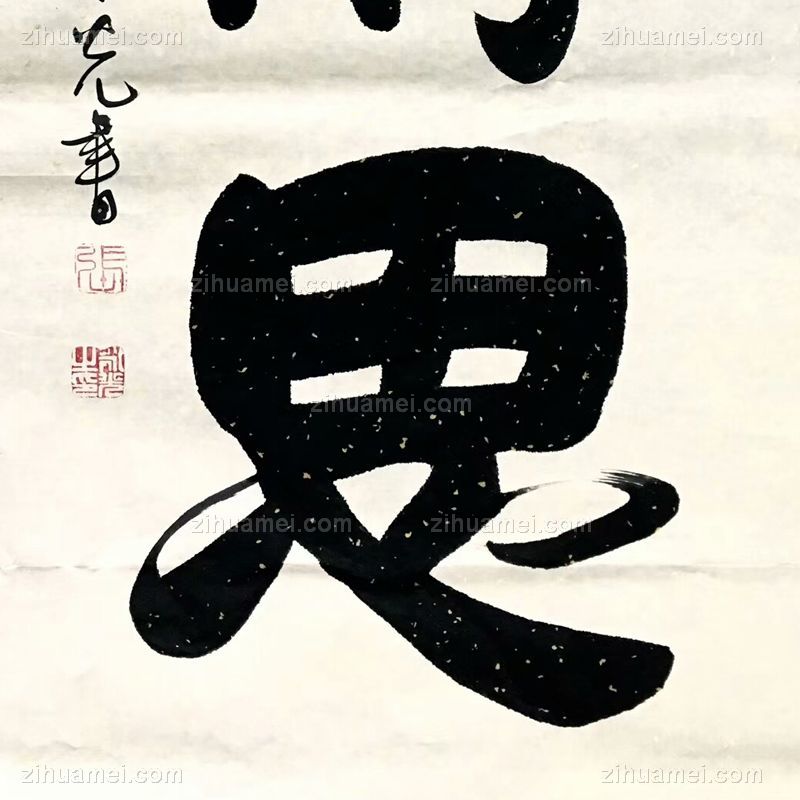 zihuamei.com zihuamei.com
思
光書
張
zihuamei.com zihuamei.com
zihuamei.com
zihuamei.com zihuamei.com
zihuamei.com zihuamei.com